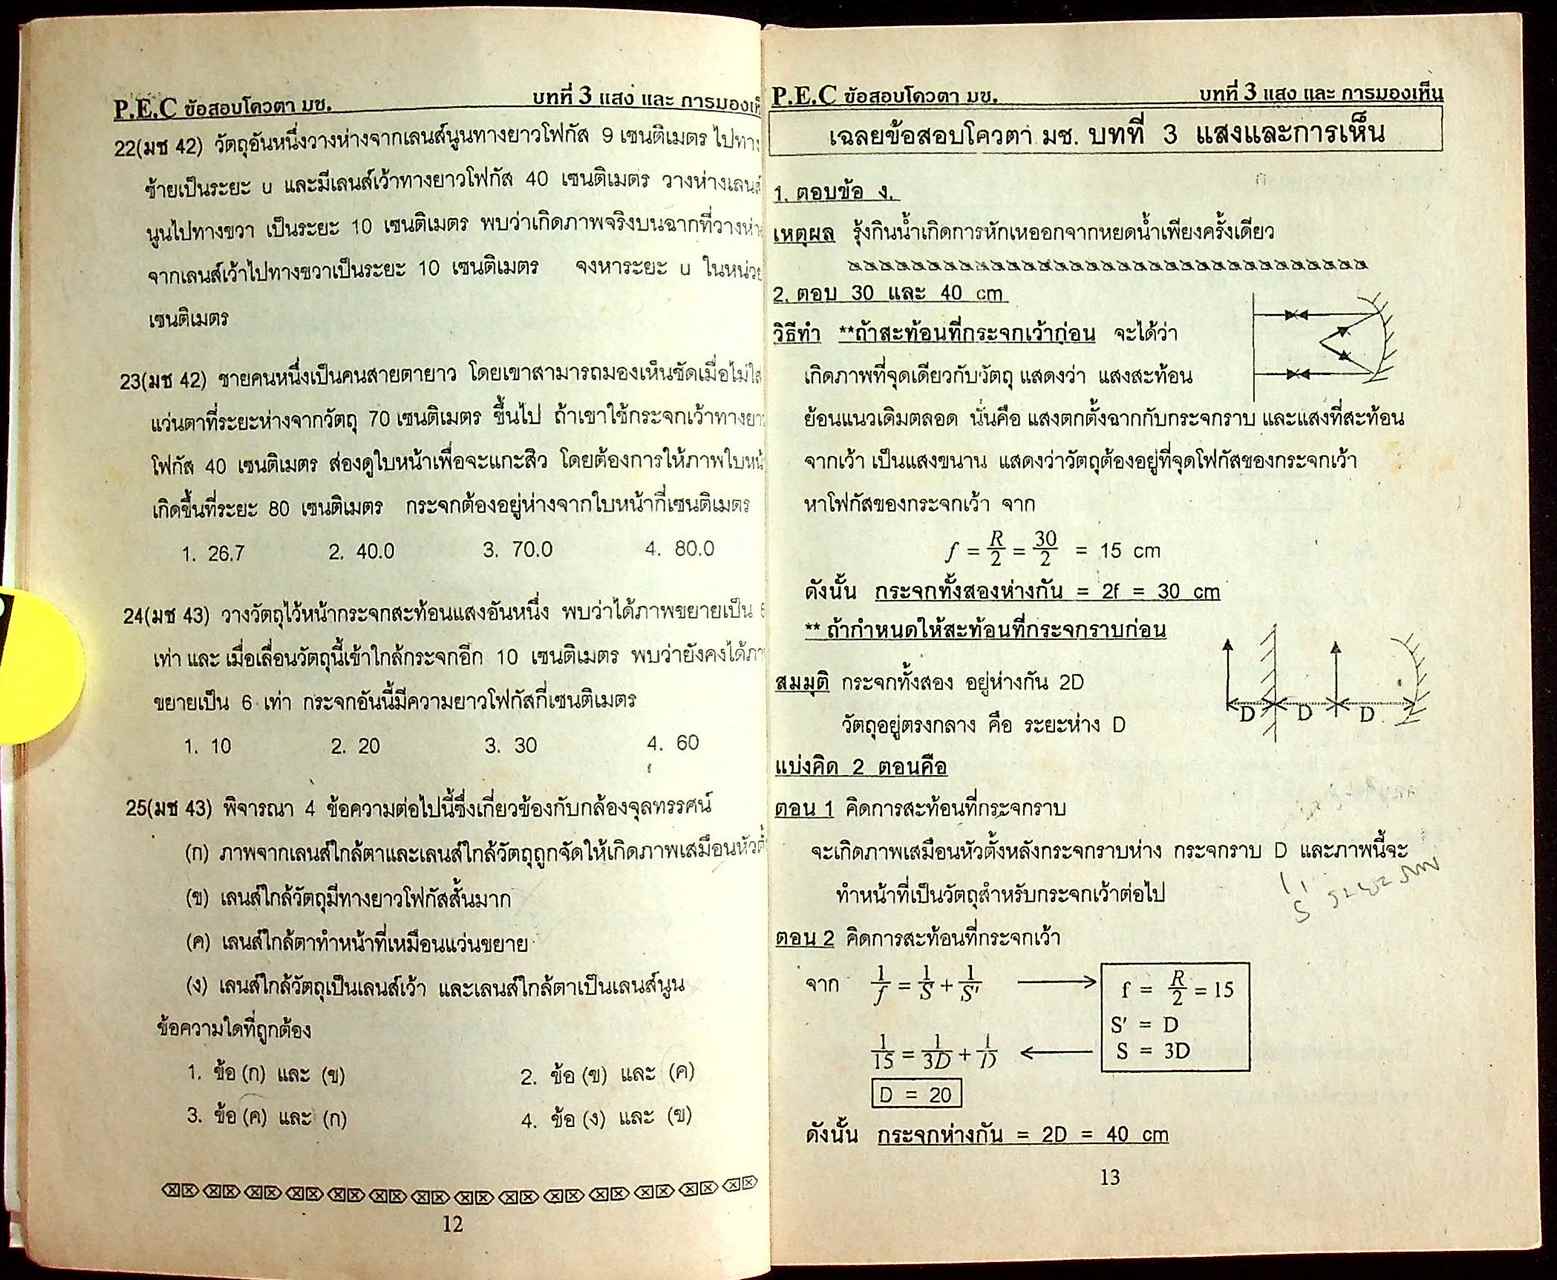 P.E.C ข้อสอบโควตา มช. บทที่ 3 แสง และ การมองเห็
22(มช 42) วัตถุอันหนึ่งวางห่างจากเลนส์นูนทางยาวโฟกัส 9 เซนติเมตร ไปทาง
ซ้ายเป็นระยะ u และมีเลนส์เว้าทางยาวโฟกัส 40 เซนติเมตร วางห่างเลนส์
นูนไปทางขวา เป็นระยะ 10 เซนติเมตร พบว่าเกิดภาพจริงบนฉากที่วางห่า
จากเลนส์เว้าไปทางขวาเป็นระยะ 10 เซนติเมตร จงหาระยะ u ในหน่วย
เซนติเมตร
23(มช 42) ชายคนหนึ่งเป็นคนสายตายาว โดยเขาสามารถมองเห็นชัดเมื่อไม่ใส
แว่นตาที่ระยะห่างจากวัตถุ 70 เซนติเมตร ขึ้นไป ถ้าเขาใช้กระจกเว้าทางยา
โฟกัส 40 เซนติเมตร ส่องดูใบหน้าเพื่อจะแกะสิว โดยต้องการให้ภาพใบหน้
เกิดขึ้นที่ระยะ 80 เซนติเมตร กระจกต้องอยู่ห่างจากใบหน้ากี่เซนติเมตร
1. 26.7 2. 40.0 3. 70.0 4. 80.0
24(มช 43) วางวัตถุไว้หน้ากระจกสะท้อนแสงอันหนึ่ง พบว่าได้ภาพขยายเป็น 6
เท่า และ เมื่อเลื่อนวัตถุนี้เข้าใกล้กระจกอีก 10 เซนติเมตร พบว่ายังคงได้ภา
ขยายเป็น 6 เท่า กระจกอันนี้มีความยาวโฟกัสกี่เซนติเมตร
1. 10 2. 20 3. 30 4. 60
25(มช 43) พิจารณา 4 ข้อความต่อไปนี้ซึ่งเกี่ยวข้องกับกล้องจุลทรรศน์
(ก) ภาพจากเลนส์ใกล้ตาและเลนส์ใกล้วัตถุถูกจัดให้เกิดภาพเสมือนหัวตั้
(ข) เลนส์ใกล้วัตถุมีทางยาวโฟกัสสั้นมาก
(ค) เลนส์ใกล้ตาทำหน้าที่เหมือนแว่นขยาย
(ง) เลนส์ใกล้วัตถุเป็นเลนส์เว้า และเลนส์ใกล้ตาเป็นเลนส์นูน
ข้อความใดที่ถูกต้อง
1. ข้อ (ก) และ (ข) 2. ข้อ (ข) และ (ค)
3. ข้อ (ค) และ (ก) 4. ข้อ (ง) และ (ข)
12
P.E.C ข้อสอบโควตา มช. บทที่ 3 แสง และ การมองเห็น
เฉลยข้อสอบโควตา มช. บทที่ 3 แสงและการเห็น
1. ตอบข้อ ง.
เหตุผล รุ้งกินน้ำเกิดการหักเหออกจากหยดน้ำเพียงครั้งเดียว
2. ตอบ 30 และ 40 cm
วิธีทำ **ถ้าสะท้อนที่กระจกเว้าก่อน จะได้ว่า
เกิดภาพที่จุดเดียวกับวัตถุ แสดงว่า แสงสะท้อน
ย้อนแนวเดิมตลอด นั่นคือ แสงตกตั้งฉากกับกระจกราบ และแสงที่สะท้อน
จากเว้า เป็นแสงขนาน แสดงว่าวัตถุต้องอยู่ที่จุดโฟกัสของกระจกเว้า
หาโฟกัสของกระจกเว้า จาก
f = R/2 = 30/2 = 15 cm
ดังนั้น กระจกทั้งสองห่างกัน = 2f = 30 cm
** ถ้ากำหนดให้สะท้อนที่กระจกราบก่อน
สมมุติ กระจกทั้งสอง อยู่ห่างกัน 2D
วัตถุอยู่ตรงกลาง คือ ระยะห่าง D
D D D
แบ่งคิด 2 ตอนคือ
ตอน 1 คิดการสะท้อนที่กระจกราบ
จะเกิดภาพเสมือนหัวตั้งหลังกระจกราบห่าง กระจกราบ D และภาพนี้จะ
ทำหน้าที่เป็นวัตถุสำหรับกระจกเว้าต่อไป
ตอน 2 คิดการสะท้อนที่กระจกเว้า
จาก 1/f = 1/S + 1/S' f = R/2 = 15
S' = D
1/15 = 1/3D + 1/D S = 3D
D = 20
ดังนั้น กระจกห่างกัน = 2D = 40 cm
13